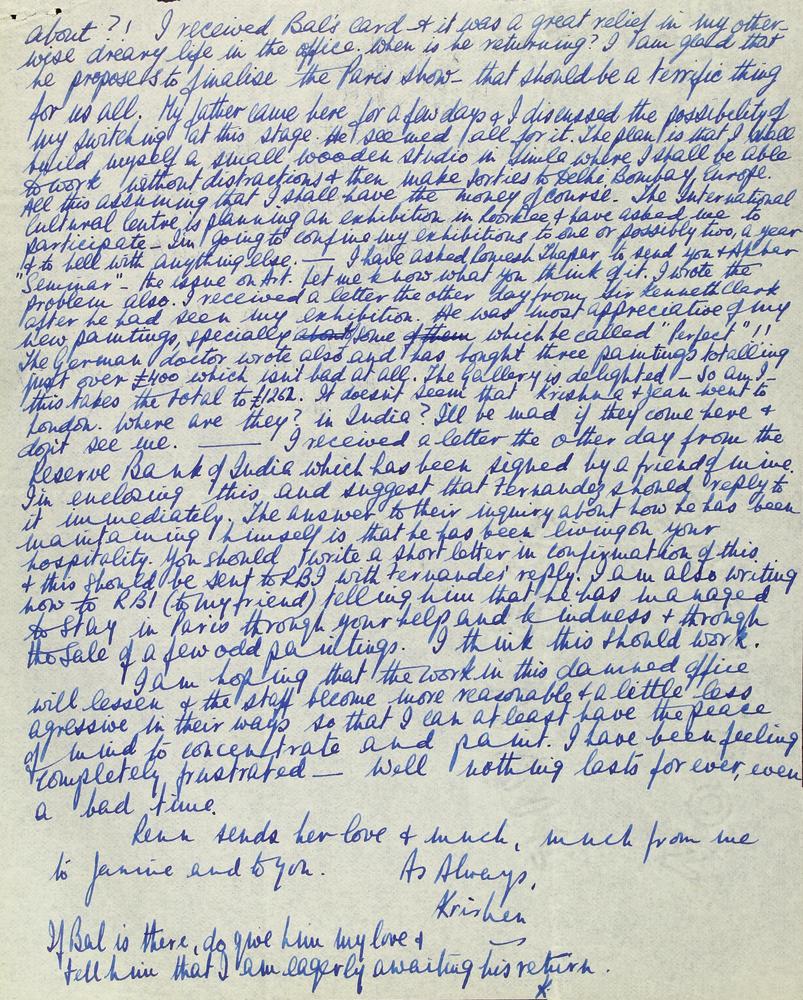 about?! I received Bal's card & it was a great relief in my other-
wise dreary life in the office. When is he returning? I am glad that
he proposes to finalise the Paris show - that should be a terrific thing
for us all. My father came here for a few days & I discussed the possibility of
my switching at this stage. He seemed all for it. The plan is that I shall
build myself a small wooden studio in Simla where I shall be able
to work without distractions & then make sorties to Delhi Bombay, Europe.
All this assuming that I shall have the money of course. The International
Cultural Centre is planning an exhibition in Roorkee & have asked me to
participate - I'm going to confine my exhibitions to one or possibly two, a year
& to hell with anything else. — I have asked Romesh Thapar to send you & Akbar
"Seminar" - the issue on Art. Let me know what you think of it. I wrote the
problem also. I received a letter the other day from Sir Kenneth Clark
after he had seen my exhibition. He was most appreciative of my
new paintings, specially about some of them which he called "Perfect"!!
The German doctor wrote also and has bought three paintings totalling
just over £400 which isn't bad at all. The Gallery is delighted - So am I -
this takes the total to £1262. It doesn't seem that Krishna & Jean went to
London. Where are they? in India? I'll be mad if they come here &
don't see me. — I received a letter the other day from the
Reserve Bank of India which has been signed by a friend of mine.
I'm enclosing this, and suggest that Fernandez should reply to
it immediately. The answer to their inquiry about how he has been
maintaining himself is that he has been living on your
hospitality. You should write a short letter in confirmation of this
& this should be sent to RBI with Fernandes' reply. I am also writing
now to RBI (to my friend) telling him that he has managed
to stay in Paris through your help and kindness & through
the sale of a few odd paintings. I think this should work.
I am hoping that the work in this damned office
will lessen & the staff become more reasonable & a little less
agressive in their ways so that I can at least have the peace
of mind to concentrate and paint. I have been feeling
completely frustrated — well nothing lasts for ever, even
a bad time.
Renu sends her love & much, much from me
to Janine and to you. As Always,
Krishen
If Bal is there, do give him my love &
tell him that I am eagerly awaiting his return.